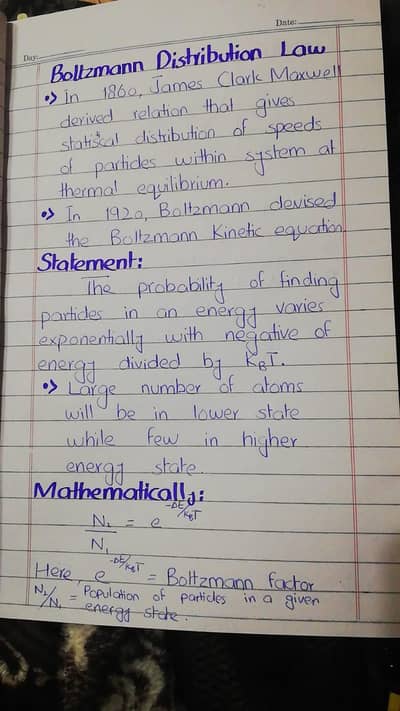 Day:
Date:
Boltzmann Distribution Law
•> In 1860, James Clark Maxwell
derived relation that gives
statiscal distribution of speeds
of particles within system at
thermal equilibrium.
•> In 1920, Boltzmann devised
the Boltzmann Kinetic equation.
Statement:
The probability of finding
particles in an energy varies
exponentially with negative of
energy divided by KBT.
•> Large number of atoms
will be in lower state
while few in higher
energy state.
Mathematically:
N₂/N₁ = e^-ΔE/KBT
Here, e^-ΔE/KBT = Boltzmann factor
N₂/N₁ = Population of particles in a given
energy state.